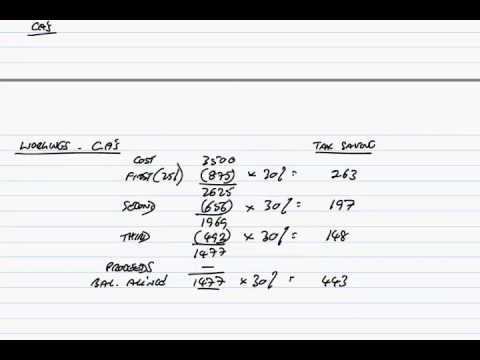 CA's
WORKINGS - CA's TAX SAVING
COST 3500
FIRST (25%) (875) × 30% = 263
2625
SECOND (656) × 30% = 197
1969
THIRD (492) × 30% = 148
1477
PROCEEDS —
BAL. ALLNCE 1477 × 30% = 443